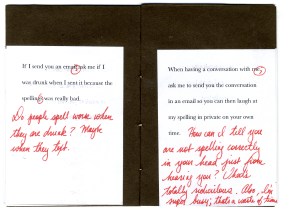 If I send you an email ask me if I
was drunk when I sent it because the
spelling was really bad.
Do people spell worse when
they are drunk? Maybe
when they type.
When having a conversation with me,
ask me to send you the conversation
in an email so you can then laugh at
my spelling in private on your own
time.
How can I tell you
are not spelling correctly
in your head just from
hearing you? That's
totally ridiculous. Also, I'm
super busy; that's a waste of time